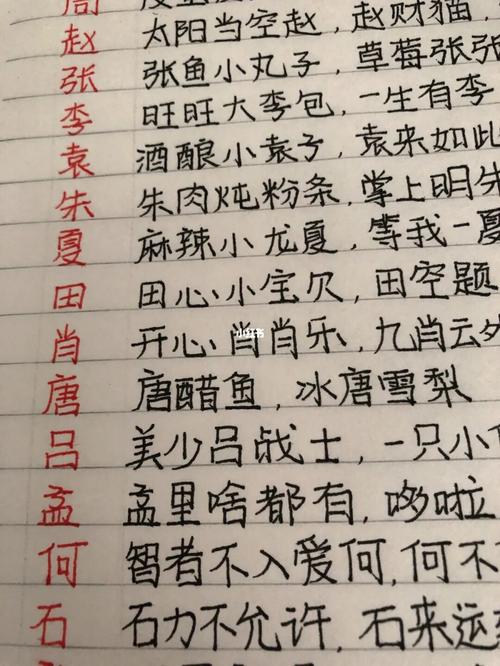 赵 太阳当空赵，赵财猫，
张 张鱼小丸子，草莓张张
李 旺旺大李包，一生有李
袁 酒酿小袁子，袁来如此
朱 朱肉炖粉条，掌上明朱
夏 麻辣小龙夏，等我一夏
田 田心小宝贝，田空题
小红书
肖 开心肖肖乐，九肖云外
唐 唐醋鱼，冰唐雪梨
吕 美少吕战士，一只小
孟 孟里啥都有，哆啦
何 智者不入爱何，何不
石 石力不允许，石来运